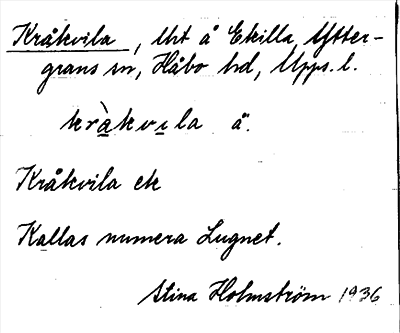 Kråkvila, lht å Ekilla, Ytter-
grans sn, Håbo hd, Upps. l.
kràkvila å.
Kråkvila ek
Kallas numera Lugnet.
Stina Holmström 1936